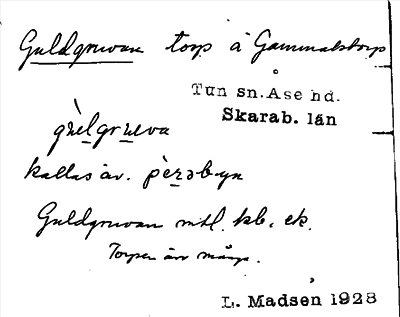 Guldgruvan torp å Gammalstorp
Tun sn. Åse hd.
Skarab. län
gùlgrụeva
kallas äv. pèrəbyn
Guldgruvan mtl. kb. ek.
Torpen äro många.
L. Madsén 1928